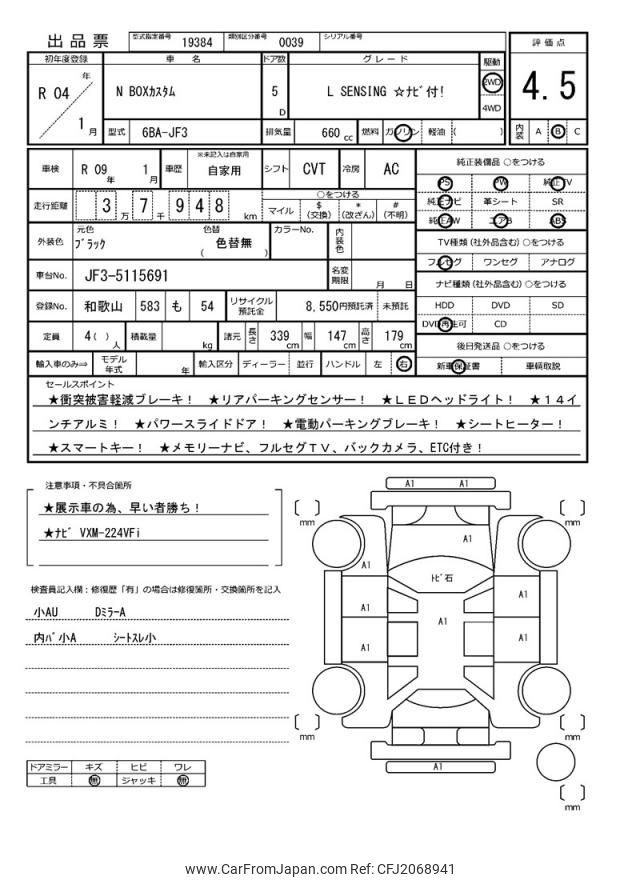 出品票 型式指定番号 19384 類別区分番号 0039 シリアル番号
評価点
4.5
内装 A B C
初年度登録 車名 ドア数 グレード 駆動
R 04 年 1 月 N BOXカスタム 5 D L SENSING ☆ナビ付! 2WD 4WD
型式 6BA-JF3 排気量 660 cc 燃料 ガソリン 軽油 ( )
車検 R 09 年 1 月 車歴 ※未記入は自家用 自家用 シフト CVT 冷房 AC
走行距離 3 万 7 千 9 4 8 km ○をつける
マイル $(交換) *(改ざん) #(不明)
外装色 元色 ブラック 色替 ( 色替無 ) カラーNo. 内装色
車台No. JF3-5115691 名変期限 月 日
登録No. 和歌山 583 も 54 リサイクル預託金 8,550円預託済 未預託
定員 4( ) 人 積載量 kg 諸元 長さ 339 cm 幅 147 cm 高さ 179 cm
輸入車のみ⇒ モデル年式 年 輸入区分 ディーラー 並行 ハンドル 左 右
純正装備品 ○をつける
PS PW 純正TV
純正ナビ 革シート SR
純正AW エアB ABS
TV種類 (社外品含む) ○をつける
フルセグ ワンセグ アナログ
ナビ種類 (社外品含む) ○をつける
HDD DVD SD
DVD再生可 CD
後日発送品 ○をつける
新車保証書 車輌取説
セールスポイント
★衝突被害軽減ブレーキ! ★リアパーキングセンサー! ★LEDヘッドライト! ★14イ
ンチアルミ! ★パワースライドドア! ★電動パーキングブレーキ! ★シートヒーター!
★スマートキー! ★メモリーナビ、フルセグTV、バックカメラ、ETC付き!
注意事項・不具合箇所
★展示車の為、早い者勝ち!
★ナビ VXM-224VFi
検査員記入欄:修復歴「有」の場合は修復箇所・交換箇所を記入
小AU DミラーA
内バ小A シートスレ小
ドアミラー キズ ヒビ ワレ
工具 無 ジャッキ 無
A1 A1
mm mm
A1
トビ石
A1 A1
A1
A1 A1
mm mm
A1
mm
www.CarFromJapan.com Ref: CFJ2068941